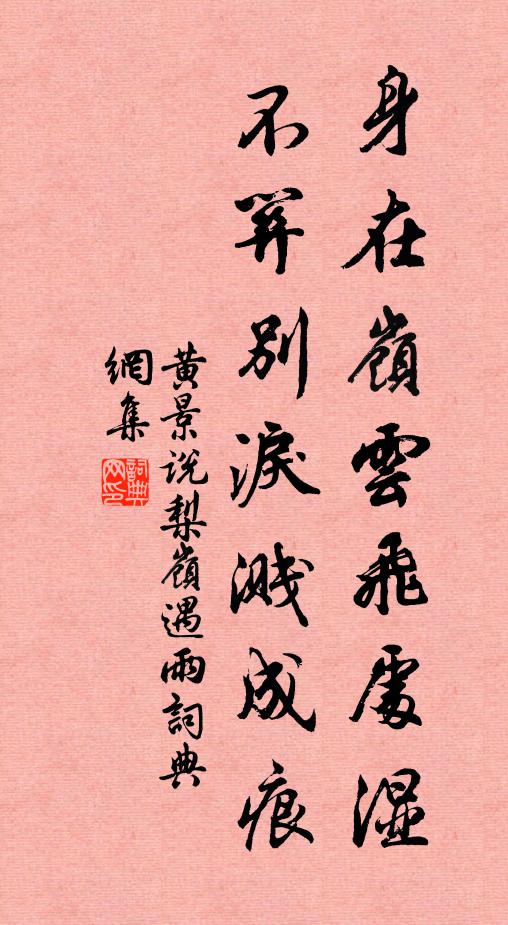 身在嶺雲飛處濕
不筭別淚濺成痕
黃景說梨嶺遇雨詞典
網集
詞典網印